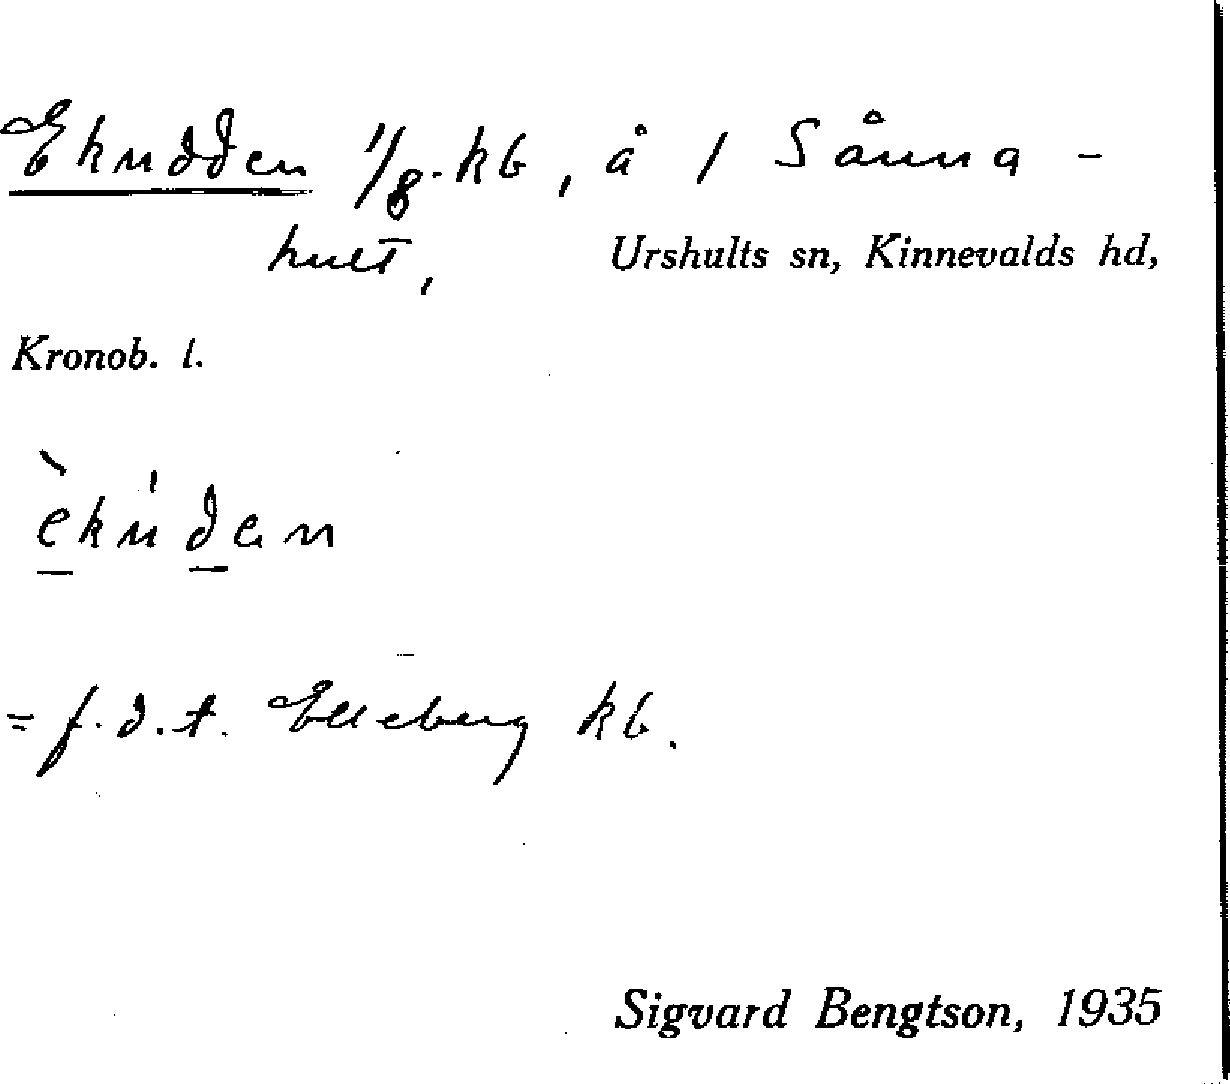 Ekudden 1/8. kb, å / Sånna-
hult,
Urshults sn, Kinnevalds hd,
Kronob. l.
èkúdan
= f.d.t. Elleberg kb.
Sigvard Bengtson, 1935